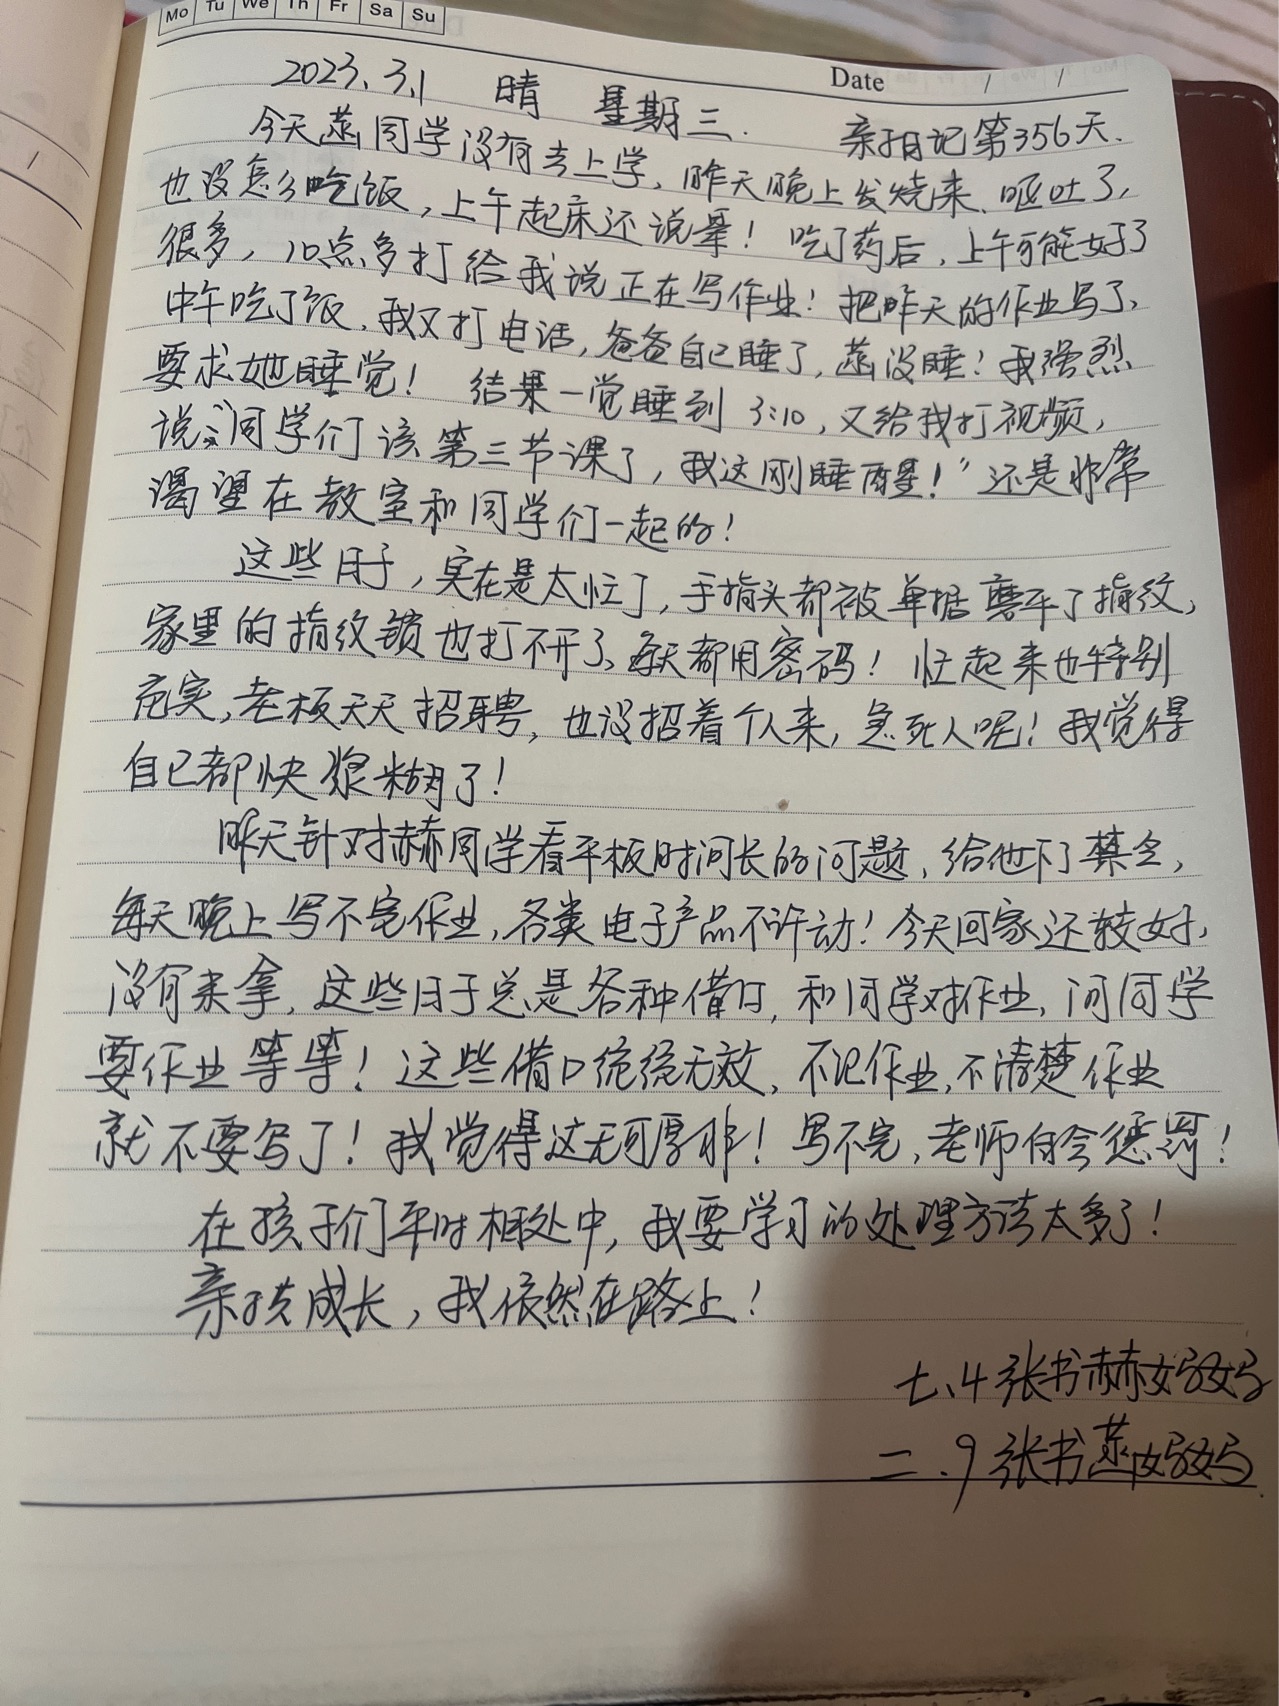 Mo Tu We Th Fr Sa Su
Date / /
2023.3.1 晴 星期三. 亲子日记第356天.
今天蒸同学没有去上学,昨天晚上发烧来、呕吐了,
也没怎么吃饭,上午起床还说晕!吃了药后,上午可能好了
很多,10点多打给我说正在写作业!把昨天的作业写了,
中午吃了饭,我又打电话,爸爸自己睡了,蒸没睡!我强烈
要求她睡觉! 结果一觉睡到3:10,又给我打视频,
说:“同学们该第三节课了,我这刚睡醒!”还是非常
渴望在教室和同学们一起的!
这些日子,实在是太忙了,手指头都被单据磨平了指纹,
家里的指纹锁也打不开了、每天都用密码!忙起来也特别
充实,老板天天招聘,也没招着个人来,急死人呢!我觉得
自己都快浆糊了!
昨天针对赫同学看平板时间长的问题,给他下了禁令,
每天晚上写不完作业,各类电子产品不许动!今天回家还较好,
没有来拿,这些日子总是各种借口,和同学对作业,问同学
要作业等等!这些借口统统无效,不记作业,不清楚作业
就不要写了!我觉得这无可厚非!写不完,老师自会惩罚!
在孩子们平时相处中,我要学习的处理方法太多了!
亲子共成长,我依然在路上!
七.4张书赫妈妈
二.9张书蒸妈妈.